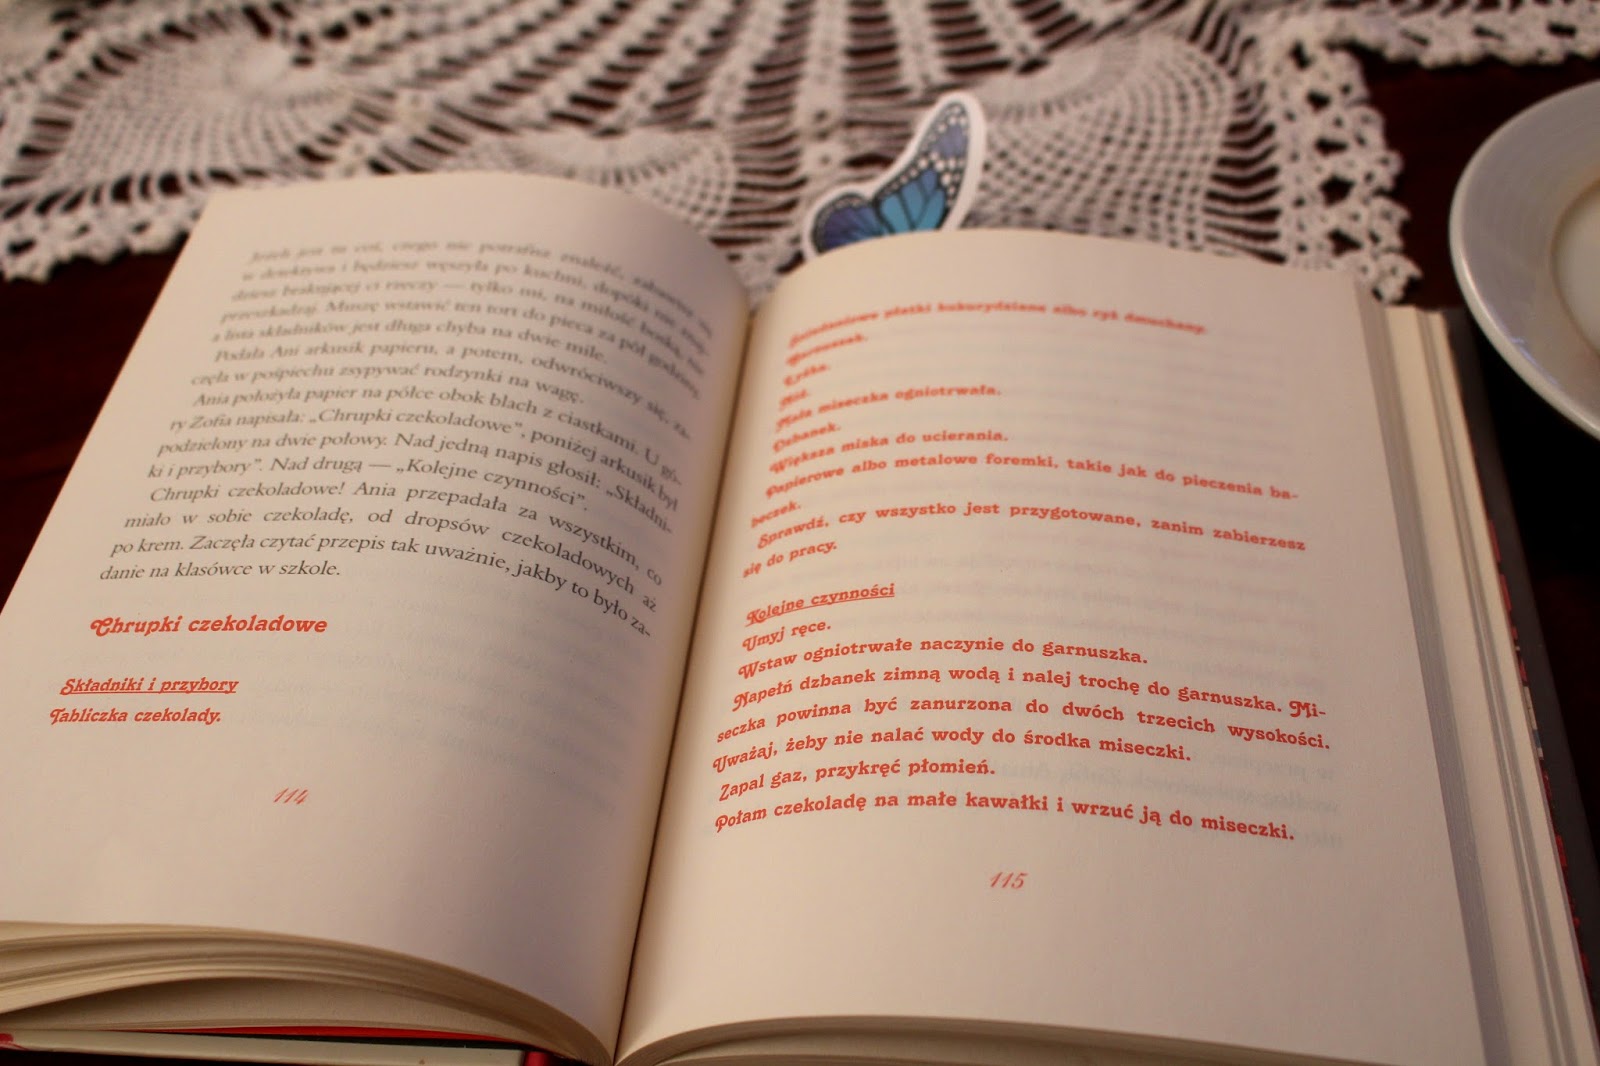 Jeżeli jest tu coś, czego nie potrafisz znaleźć, zabaw się
w detektywa i będziesz węszyła po kuchni, dopóki nie znaj-
dziesz brakującej ci rzeczy — tylko mi, na miłość boską, nie
przeszkadzaj. Muszę wstawić ten tort do pieca za pół godziny,
a lista składników jest długa chyba na dwie mile.
Podała Ani arkusik papieru, a potem, odwróciwszy się, za-
częła w pośpiechu zsypywać rodzynki na wagę.
Ania położyła papier na półce obok blach z ciastkami. U gó-
ry Zofia napisała: „Chrupki czekoladowe”, poniżej arkusik był
podzielony na dwie połowy. Nad jedną napis głosił: „Składni-
ki i przybory”. Nad drugą — „Kolejne czynności”.
Chrupki czekoladowe! Ania przepadała za wszystkim, co
miało w sobie czekoladę, od dropsów czekoladowych aż
po krem. Zaczęła czytać przepis tak uważnie, jakby to było za-
danie na klasówce w szkole.
Chrupki czekoladowe
Składniki i przybory
Tabliczka czekolady.
114
Śniadaniowe płatki kukurydziane albo ryż dmuchany.
Garnuszek.
Łyżka.
Nóż.
Mała miseczka ogniotrwała.
Dzbanek.
Większa miska do ucierania.
Papierowe albo metalowe foremki, takie jak do pieczenia ba-
beczek.
Sprawdź, czy wszystko jest przygotowane, zanim zabierzesz
się do pracy.
Kolejne czynności
Umyj ręce.
Wstaw ogniotrwałe naczynie do garnuszka.
Napełń dzbanek zimną wodą i nalej trochę do garnuszka. Mi-
seczka powinna być zanurzona do dwóch trzecich wysokości.
Uważaj, żeby nie nalać wody do środka miseczki.
Zapal gaz, przykręć płomień.
Połam czekoladę na małe kawałki i wrzuć ją do miseczki.
115